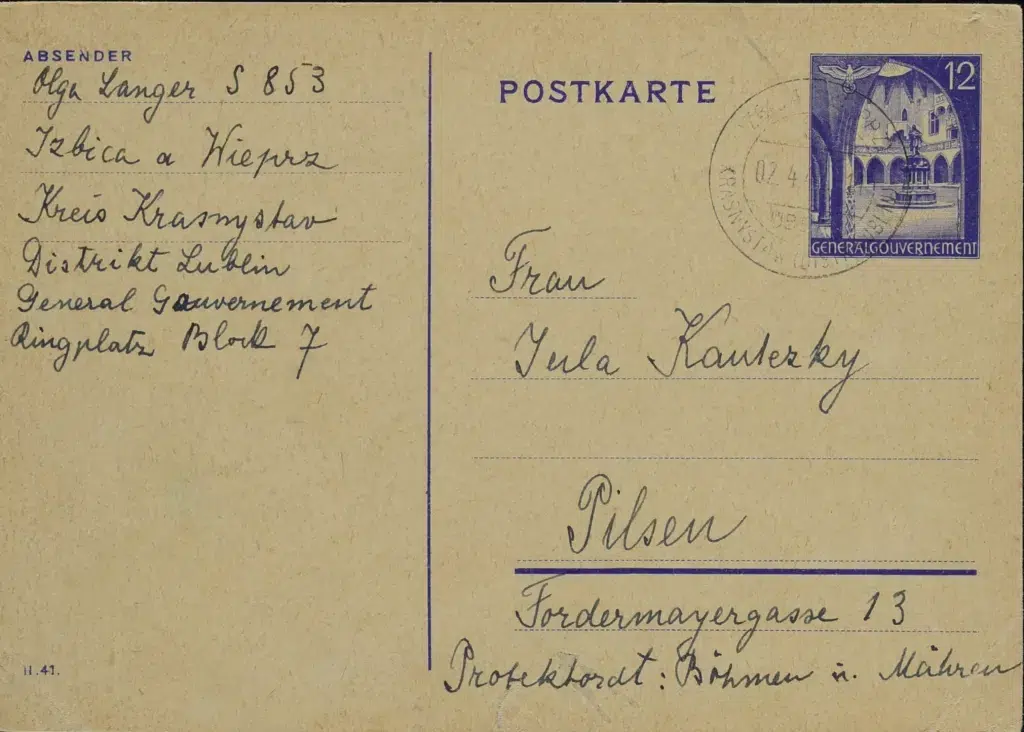 ABSENDER
Olga Langer S 853
Izbica a Wieprz
Kreis Krasnystav
Distrikt Lublin
General Gouvernement
Ringplatz Block 7
II.41.
POSTKARTE
12
02.4
GENERALGOUVERNEMENT
Frau
Jula Kautezky
Pilsen
Fordermayergasse 13
Protekhordt: Böhmen u. Mähren